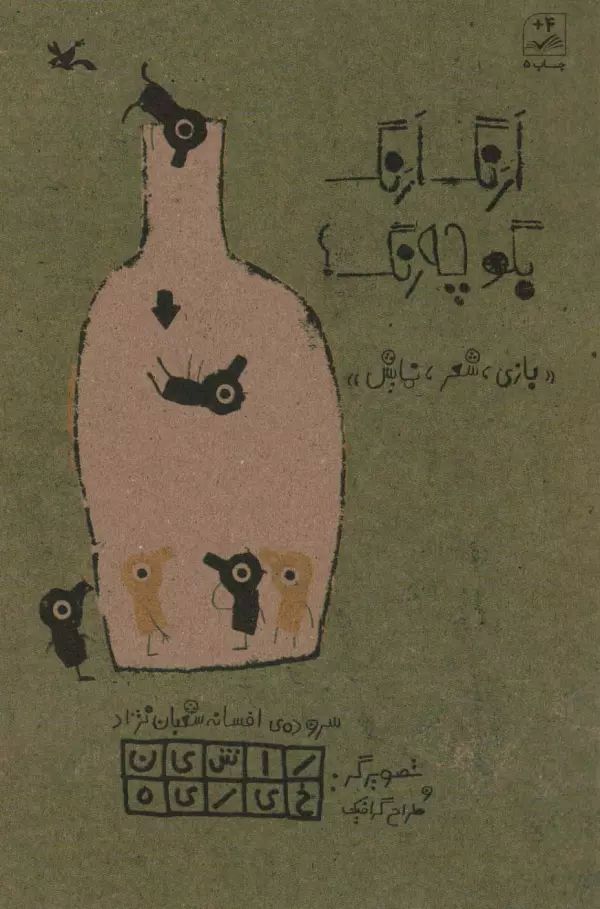 +۴
چاپ ۵
اَرَنگ اَرَنگ
بگو چه رنگ؟
«بازی، شعر، نمایش»
سروده‌ی افسانه شعبان نژاد
تصویرگر
و
طراح گرافیک:
ر ا ش ی ن
خ ی ر ی ه